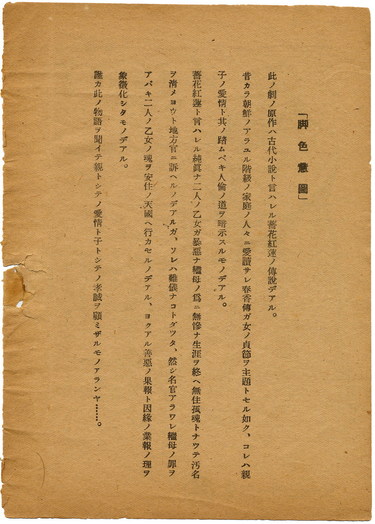 「脚色意圖」
此ノ劇ノ原作ハ古代小說ト言ハレル薔花紅蓮ノ傳說デアル。
昔カラ朝鮮ノアラユル階級ノ家庭ノ人々ニ愛讀サレ春香傳ガ女ノ貞節ヲ主題トセル如ク、コレハ親
子ノ愛情ト其ノ踏ムベキ人倫ノ道ヲ暗示スルモノデアル。
薔花紅蓮ト言ハレル純眞ナ二人ノ乙女ガ暴惡ナ繼母ノ爲ニ無慘ナ生涯ヲ終ヘ無住孤魂トナツテ汚名
ヲ淸メヨウト地方官ニ訴ヘルノデアルガ、ソレハ難儀ナコトダツタ、然シ名官アラワレ繼母ノ罪ヲ
アバキ二人ノ乙女ノ魂ヲ安住ノ天國ヘ行カセルノデアル、ヨクアル善惡ノ果報ト因緣ノ業報ノ理ヲ
象徵化シタモノデアル。
誰カ此ノ物語ヲ聞イテ親トシテノ愛情ト子トシテノ孝誠ヲ顧ミザルモノアランヤ……。